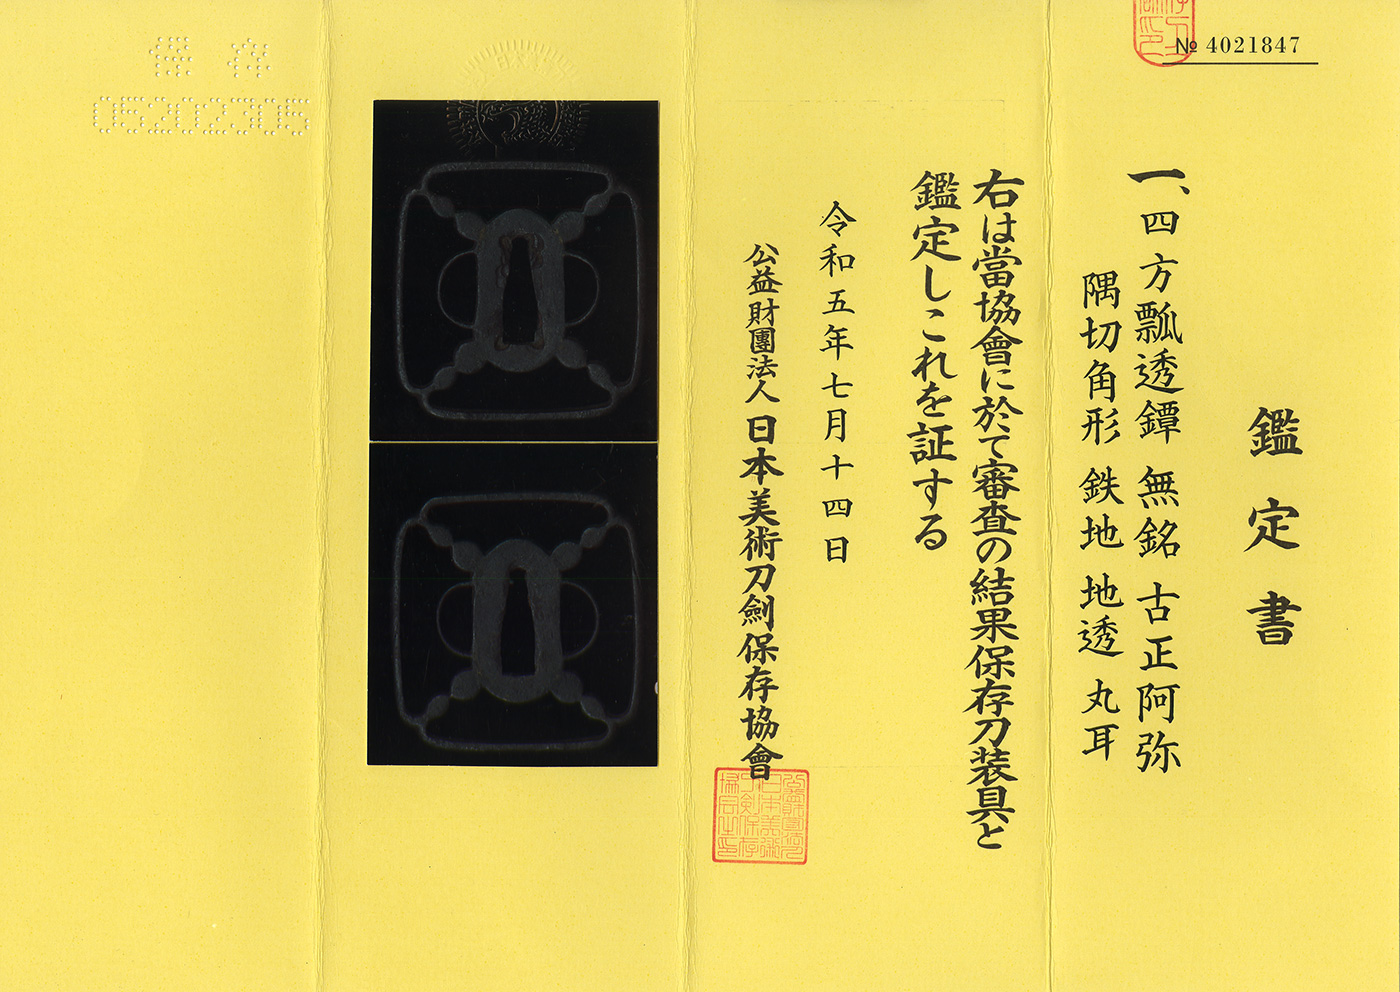 № 4021847
鑑定書
一、四方瓢透鐔 無銘 古正阿弥
隅切角形 鉄地 地透 丸耳
右は當協會に於て審査の結果保存刀装具と
鑑定しこれを証する
令和五年七月十四日
公益財團法人 日本美術刀劍保存協會
保存
05202305